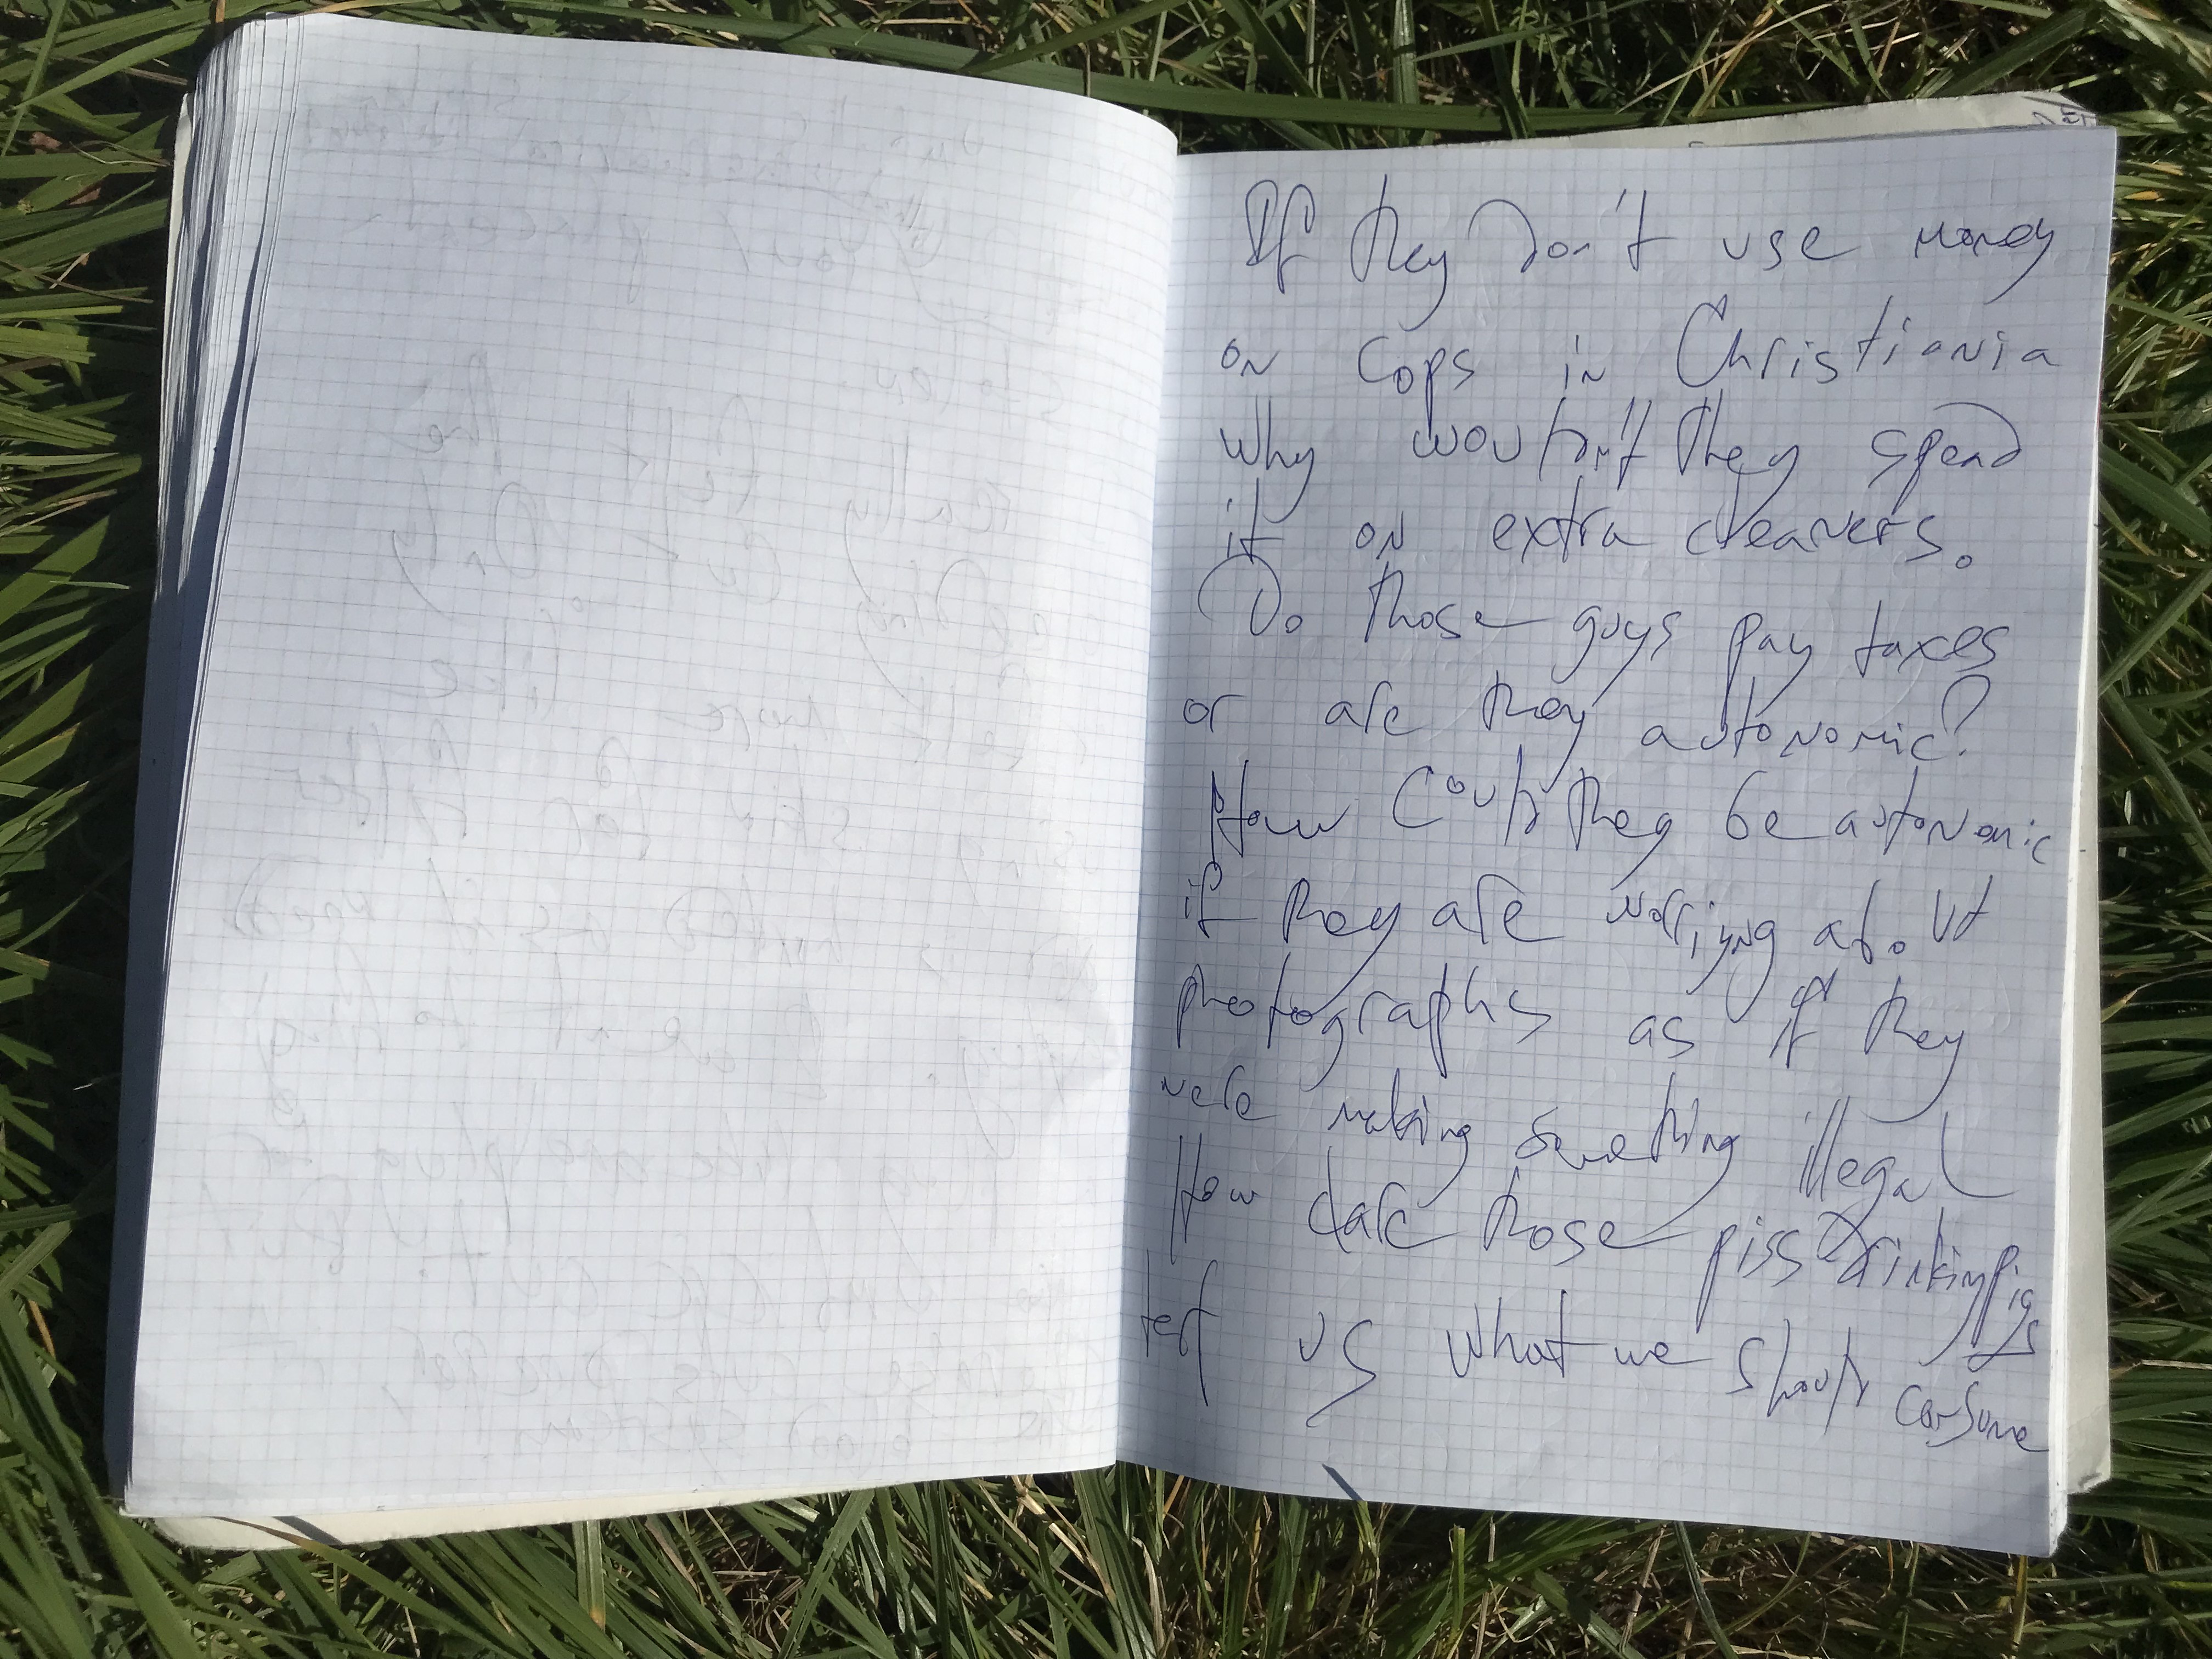 If they don't use money
on cops in Christiania
Why wouldn't they spend
it on extra cleaners.
Do those guys pay taxes
or are they autonomic?
How could they be autonomic
if they are worrying about
photographs as if they
were making something illegal
How dare those piss drinking pigs
tell us what we should consume